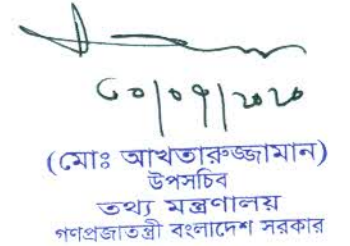 ৩০|০৭|২০২০
(মোঃ আখতারুজ্জামান)
উপসচিব
তথ্য মন্ত্রণালয়
গণপ্রজাতন্ত্রী বংলাদেশ সরকার